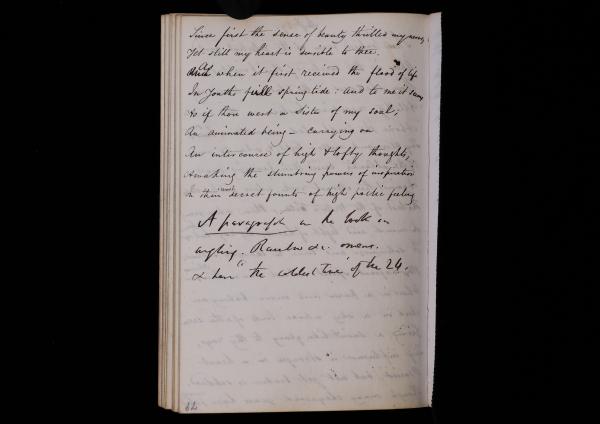 Since first the sense of beauty thrilled my nerves,
Yet still my heart is sensible to thee
As when it first received the flood of life
In Youths full spring tide: and to me it seems
As if thou wert a Sister of my soul,
An animated being – carrying on
An intercourse of high & lofty thoughts,
Awaking the slumbring powers of inspiration
In their most secret founts of high poetic feeling
A paragraph on the book on
angling. Rainbow &c. omens.
& then "the coldest time" of the 24.
62